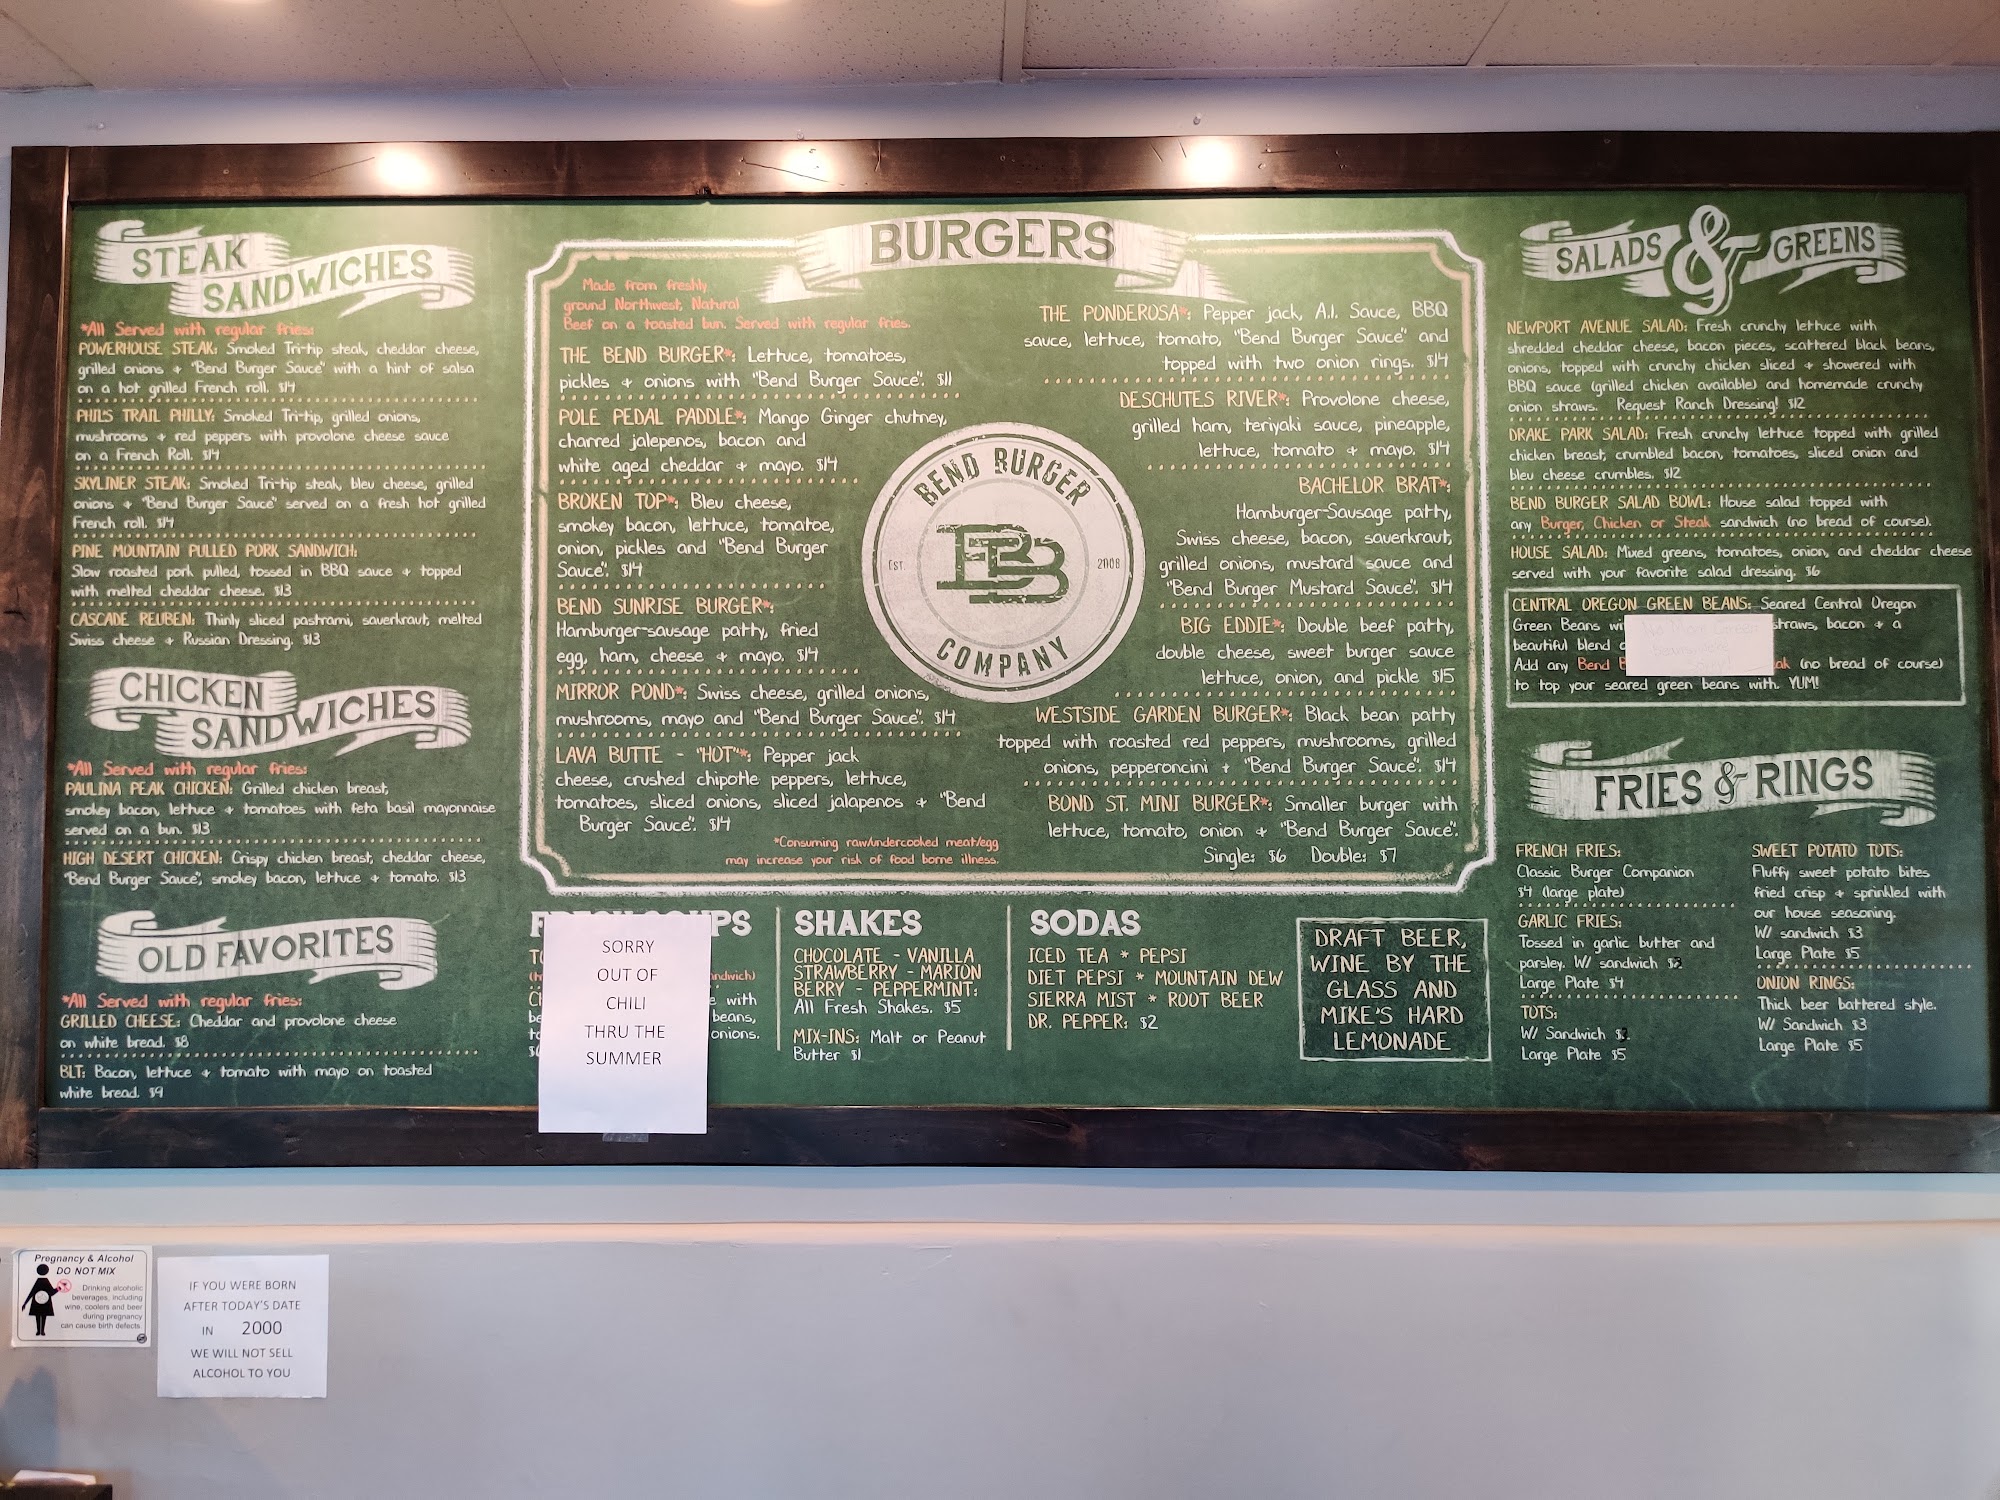 STEAK
SANDWICHES
*All Served with regular fries:
POWERHOUSE STEAK: Smoked Tri-tip steak, cheddar cheese,
grilled onions + "Bend Burger Sauce" with a hint of salsa
on a hot grilled French roll. $14
PHIL'S TRAIL PHILLY: Smoked Tri-tip, grilled onions,
mushrooms + red peppers with provolone cheese sauce
on a French Roll. $14
SKYLINER STEAK: Smoked Tri-tip steak, bleu cheese, grilled
onions + "Bend Burger Sauce" served on a fresh hot grilled
French roll. $14
PINE MOUNTAIN PULLED PORK SANDWICH:
Slow roasted pork pulled, tossed in BBQ sauce + topped
with melted cheddar cheese. $13
CASCADE REUBEN: Thinly sliced pastrami, sauerkraut, melted
Swiss cheese + Russian Dressing. $13
CHICKEN
SANDWICHES
*All Served with regular fries:
PAULINA PEAK CHICKEN: Grilled chicken breast,
smokey bacon, lettuce + tomatoes with feta basil mayonnaise
served on a bun. $13
HIGH DESERT CHICKEN: Crispy chicken breast, cheddar cheese,
"Bend Burger Sauce", smokey bacon, lettuce + tomato. $13
OLD FAVORITES
*All Served with regular fries:
GRILLED CHEESE: Cheddar and provolone cheese
on white bread. $8
BLT: Bacon, lettuce + tomato with mayo on toasted
white bread. $9
BURGERS
Made from freshly
ground Northwest, Natural
Beef on a toasted bun. Served with regular fries.
THE BEND BURGER*: Lettuce, tomatoes,
pickles + onions with "Bend Burger Sauce". $11
POLE PEDAL PADDLE*: Mango Ginger chutney,
charred jalepenos, bacon and
white aged cheddar + mayo. $14
BROKEN TOP*: Bleu cheese,
smokey bacon, lettuce, tomatoe,
onion, pickles and "Bend Burger
Sauce". $14
BEND SUNRISE BURGER*:
Hamburger-sausage patty, fried
egg, ham, cheese + mayo. $14
MIRROR POND*: Swiss cheese, grilled onions,
mushrooms, mayo and "Bend Burger Sauce". $14
LAVA BUTTE - "HOT"*: Pepper jack
cheese, crushed chipotle peppers, lettuce,
tomatoes, sliced onions, sliced jalapenos + "Bend
Burger Sauce". $14
*Consuming raw/undercooked meat/egg
may increase your risk of food borne illness.
BEND BURGER
EST. 2008
BB
COMPANY
THE PONDEROSA*: Pepper jack, A.1. Sauce, BBQ
sauce, lettuce, tomato, "Bend Burger Sauce" and
topped with two onion rings. $14
DESCHUTES RIVER*: Provolone cheese,
grilled ham, teriyaki sauce, pineapple,
lettuce, tomato + mayo. $14
BACHELOR BRAT*:
Hamburger-Sausage patty,
Swiss cheese, bacon, sauerkraut,
grilled onions, mustard sauce and
"Bend Burger Mustard Sauce". $14
BIG EDDIE*: Double beef patty,
double cheese, sweet burger sauce
lettuce, onion, and pickle $15
WESTSIDE GARDEN BURGER*: Black bean patty
topped with roasted red peppers, mushrooms, grilled
onions, pepperoncini + "Bend Burger Sauce". $14
BOND ST. MINI BURGER*: Smaller burger with
lettuce, tomato, onion + "Bend Burger Sauce".
Single: $6 Double: $7
SORRY
OUT OF
CHILI
THRU THE
SUMMER
with
beans,
onions.
SHAKES
CHOCOLATE - VANILLA
STRAWBERRY - MARION
BERRY - PEPPERMINT:
All Fresh Shakes. $5
MIX-INS: Malt or Peanut
Butter $1
SODAS
ICED TEA * PEPSI
DIET PEPSI * MOUNTAIN DEW
SIERRA MIST * ROOT BEER
DR. PEPPER: $2
DRAFT BEER,
WINE BY THE
GLASS AND
MIKE'S HARD
LEMONADE
SALADS & GREENS
NEWPORT AVENUE SALAD: Fresh crunchy lettuce with
shredded cheddar cheese, bacon pieces, scattered black beans,
onions, topped with crunchy chicken sliced + showered with
BBQ sauce (grilled chicken available) and homemade crunchy
onion straws. Request Ranch Dressing! $12
DRAKE PARK SALAD: Fresh crunchy lettuce topped with grilled
chicken breast, crumbled bacon, tomatoes, sliced onion and
bleu cheese crumbles. $12
BEND BURGER SALAD BOWL: House salad topped with
any Burger, Chicken or Steak sandwich (no bread of course).
HOUSE SALAD: Mixed greens, tomatoes, onion, and cheddar cheese
served with your favorite salad dressing. $6
CENTRAL OREGON GREEN BEANS: Seared Central Oregon
Green Beans straws, bacon + a
beautiful blend
Add any Bend (no bread of course)
to top your seared green beans with. YUM!
FRIES & RINGS
FRENCH FRIES:
Classic Burger Companion
$4 (large plate)
GARLIC FRIES:
Tossed in garlic butter and
parsley. W/ sandwich
Large Plate $4
TOTS:
W/ Sandwich
Large Plate $5
SWEET POTATO TOTS:
Fluffy sweet potato bites
fried crisp + sprinkled with
our house seasoning.
W/ sandwich $3
Large Plate $5
ONION RINGS:
Thick beer battered style.
W/ Sandwich $3
Large Plate $5
Pregnancy & Alcohol
DO NOT MIX
Drinking alcoholic
beverages, including
wine, coolers and beer
during pregnancy
can cause birth defects.
IF YOU WERE BORN
AFTER TODAY'S DATE
IN 2000
WE WILL NOT SELL
ALCOHOL TO YOU